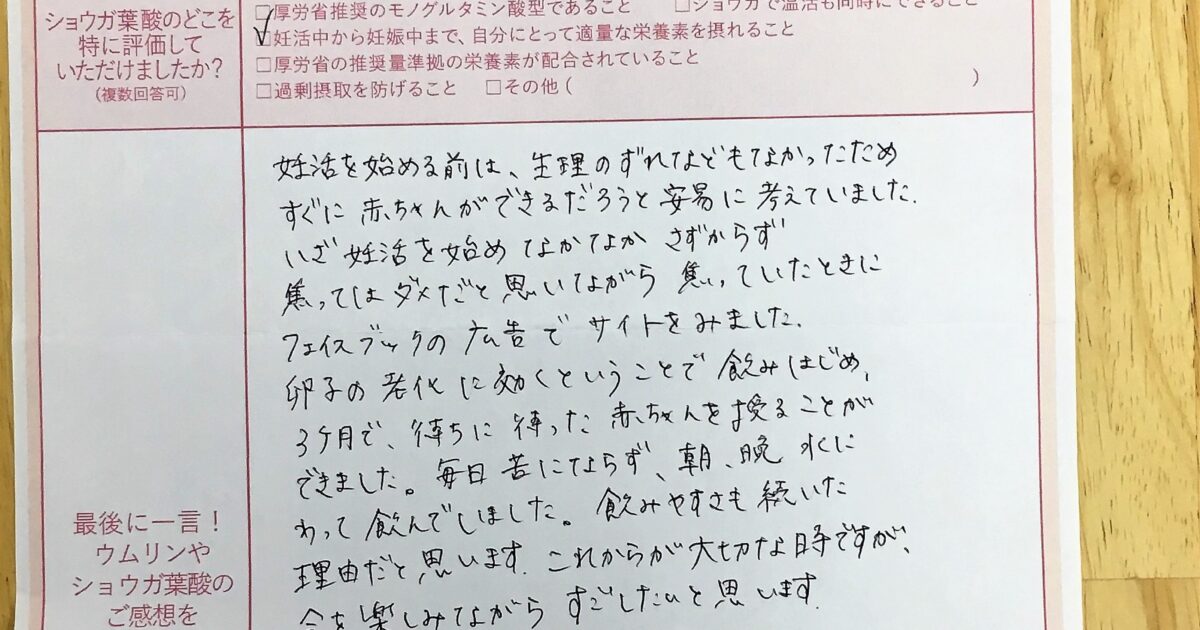 ショウガ葉酸のどこを
特に評価して
いただけましたか?
(複数回答可)
□厚労省推奨のモノグルタミン酸型であること □ショウガで温活も同時にできること
☑妊活中から妊娠中まで、自分にとって適量な栄養素を摂れること
□厚労省の推奨量準拠の栄養素が配合されていること
□過剰摂取を防げること □その他( )
妊活を始める前は、生理のずれなどもなかったため
すぐに赤ちゃんができるだろうと安易に考えていました.
いざ妊活を始めなかなかさずからず
焦ってはダメだと思いながら焦っていたときに
フェイスブックの広告でサイトをみました.
卵子の老化に効くということで飲みはじめ、
3ヶ月で、待ちに待った赤ちゃんを授ることが
できました。毎日苦にならず、朝、晩 水に
わって飲んでしました。飲みやすさも続いた
理由だと思います.これからが大切な時ですが、
を楽しみながらすごしたいと思います.
最後に一言!
ウムリンや
ショウガ葉酸の
ご感想を